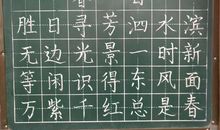 春
胜日寻芳泗水滨
无边光景一时新
等闲识得东风面
万紫千红总是春